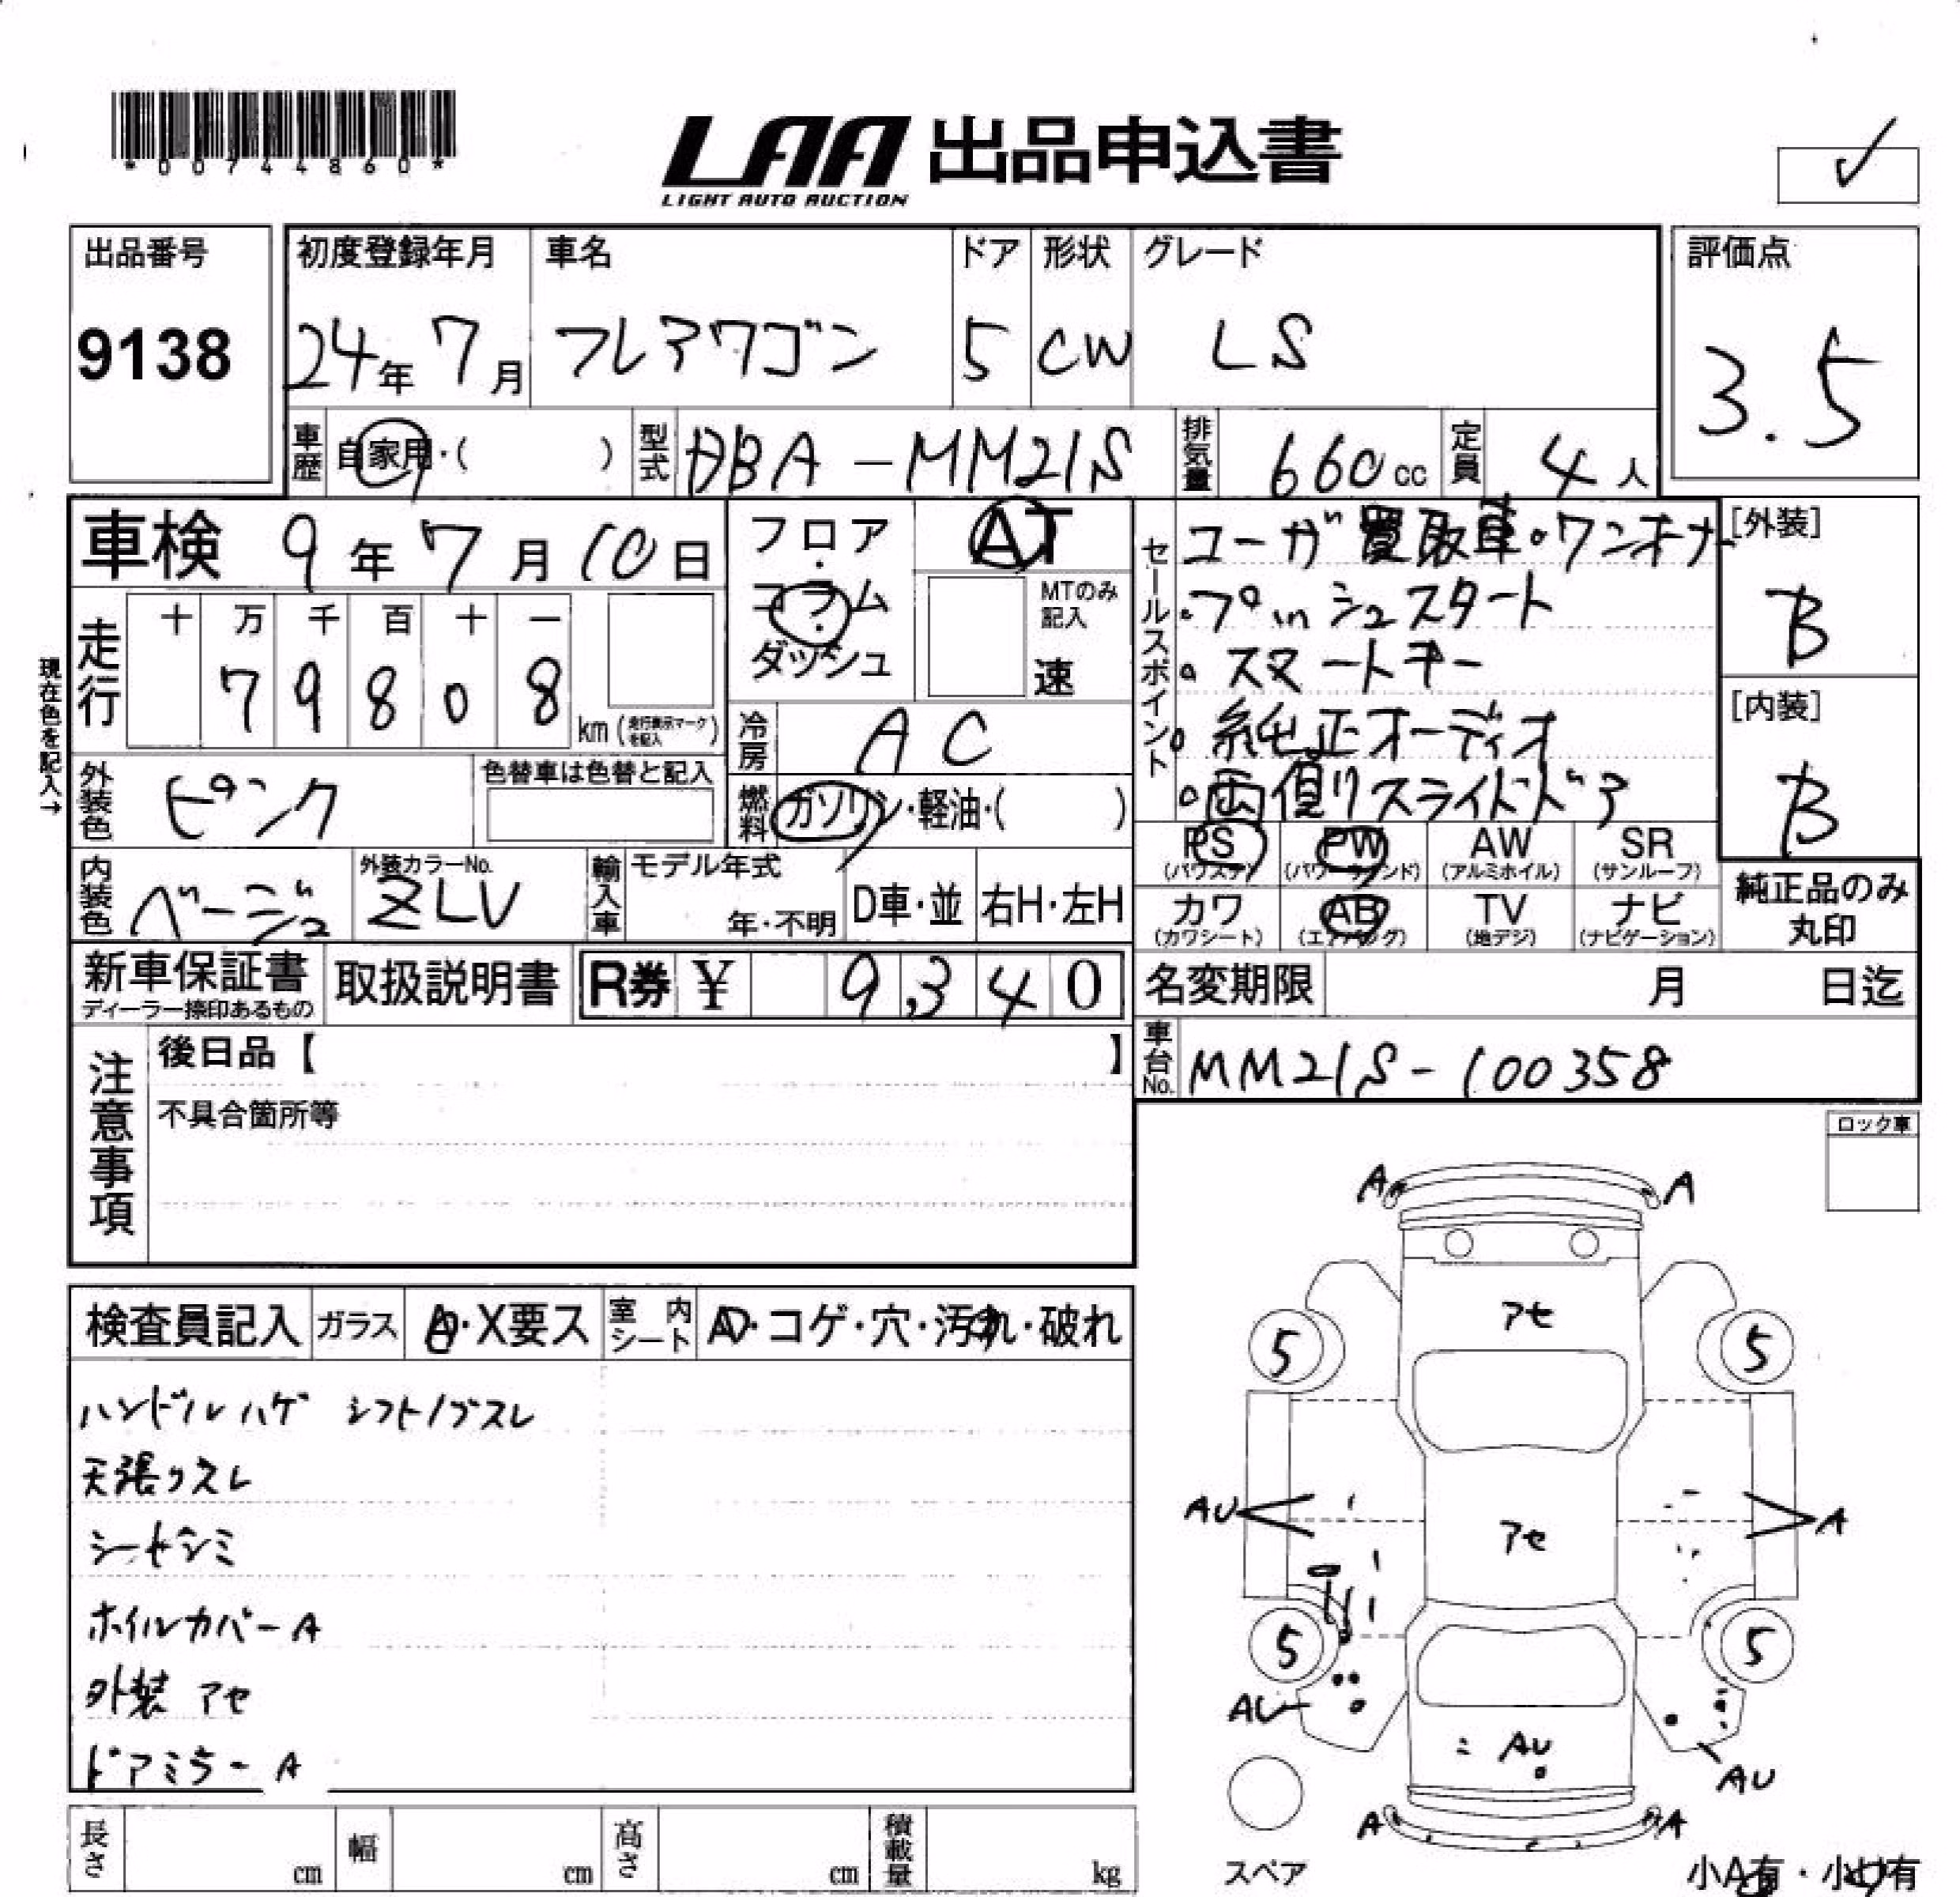 *00744860*
LAA 出品申込書
LIGHT AUTO AUCTION
出品番号
9138
初度登録年月
24年 7月
車名
フレアワゴン
ドア
5
形状
CW
グレード
LS
評価点
3.5
車歴 自家用・( )
型式 DBA-MM21S
排気量 660cc
定員 4人
車検 9年7月10日
走行 十 万 千 百 十 一
7 9 8 0 8
km (走行表示マークを記入)
現在色を記入→
外装色 ピンク
色替車は色替と記入
内装色 ベージュ
外装カラーNo.
ZLV
フロア・コラム・ダッシュ
AT
MTのみ記入
速
冷房 AC
燃料 ガソリン・軽油・( )
輸入車 モデル年式
年・不明
D車・並 右H・左H
セールスポイント
ユーザ買取車・ワンオーナー
・プッシュスタート
・スマートキー
・純正オーディオ
・両側スライドドア
[外装]
B
[内装]
B
PS (パワステ)
PW (パワーウィンド)
AW (アルミホイル)
SR (サンルーフ)
カワ (カワシート)
AB (エアバッグ)
TV (地デジ)
ナビ (ナビゲーション)
純正品のみ丸印
新車保証書
ディーラー捺印あるもの
取扱説明書
R券 ¥ 9,340
名変期限 月 日迄
車台No. MM21S-100358
注意事項
後日品【 】
不具合箇所等
ロック車
検査員記入
ガラス A・X要ス
室内シート A・コゲ・穴・汚れ・破れ
ハンドルハゲ シフトノブスレ
天張りスレ
シートシミ
ホイルカバーA
外装 アセ
ドアミラーA
A A
アセ
5 5
AU A
アセ
5 5
AU
AU
AU
A A
スペア
小A有・小U有
長さ cm
幅 cm
高さ cm
積載量 kg